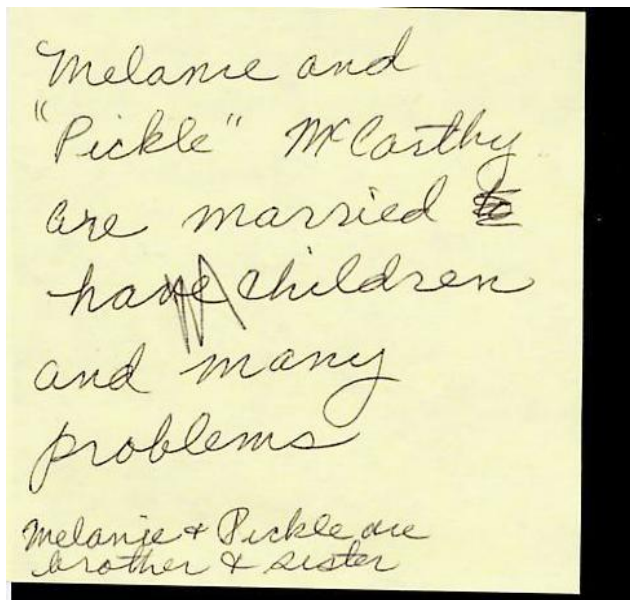 Melanie and
"Pickle" McCarthy
are married to
have children
and many
problems
Melanie & Pickle are
brother & sister